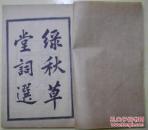 綠秋草
堂詞選